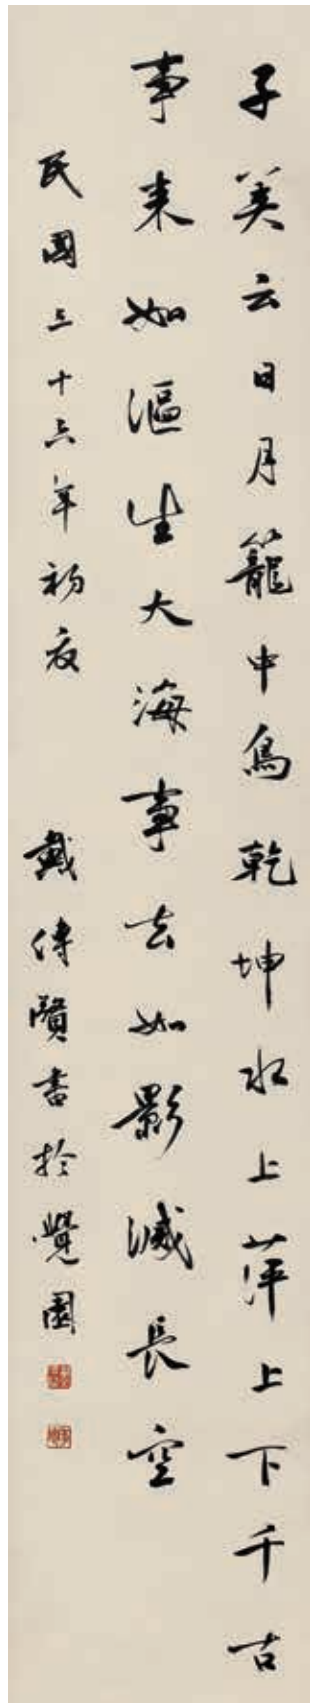 子美云日月籠中鳥乾坤水上萍上下千古
事来如漚生大海事去如影滅長空
民國三十六年初夜
戴傳賢書於覺園